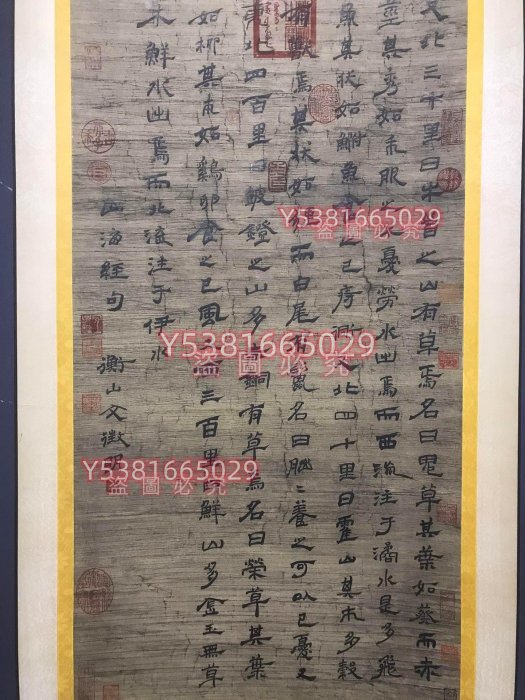 又北三十里曰牛首之山有草焉名曰鬼草其葉如葵而赤
莖其秀如禾服之不憂勞水出焉而西流注于潏水是多飛
魚其狀如鮒魚食之已痔衕又北四十里曰霍山其木多榖
有獸焉其狀如貍而白尾有鬣名曰朏〻養之可以已憂又
東北四百里曰鼓鐙之山多赤銅有草焉名曰榮草其葉
如柳其本如鷄卵食之已風又西三百里曰鮮山多金玉無草
木鮮水出焉而北流注于伊水
山海經句 衡山文徵明
Y5381665029
盜圖必究
Y5381665029
盜圖必究
Y5381665029
盜圖必究